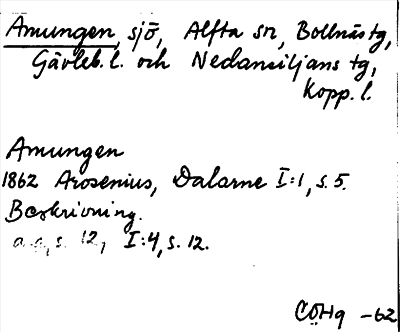 Amungen, sjö, Alfta sn, Bollnäs tg,
Gävleb. l. och Nedansiljans tg,
Kopp. l.
Amungen
1862 Arosenius, Dalarne I:1, s. 5.
Beskrivning.
a.a., s. 12, I:4, s. 12.
COHq -62